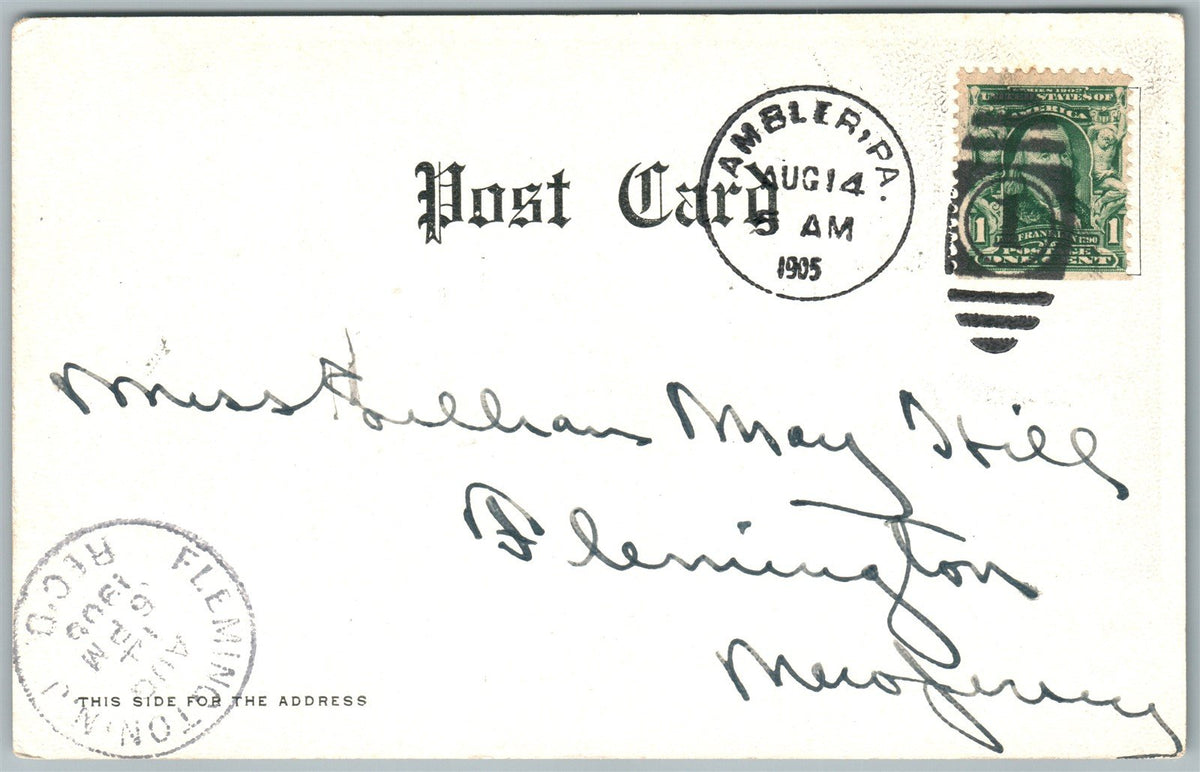 AMBLER, PA.
AUG 14
5 AM
1905
Post Card
SERIES 1902
UNITED STATES OF
AMERICA
1 FRANKLIN 1790 1
POSTAGE
ONE CENT
Miss Lillian May Hill
Flemington
New Jersey
FLEMINGTON N.J.
REC'D.
AUG
THIS SIDE FOR THE ADDRESS